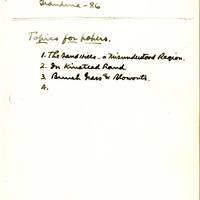 Grandma - 86
Topics for papers.
1. The Sandhills - a Misunderstood Region.
2. In Kinstead Rand
3. Brush Grass & Blowouts.
4.